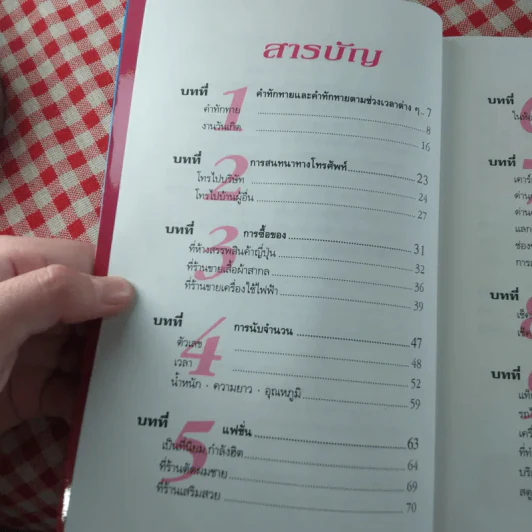 สารบัญ
บทที่ 1 คำทักทายและคำทักทายตามช่วงเวลาต่าง ๆ.. 7
คำทักทาย 8
งานวันเกิด 16
บทที่ 2 การสนทนาทางโทรศัพท์ 23
โทรไปบริษัท 24
โทรไปบ้านผู้อื่น 27
บทที่ 3 การซื้อของ 31
ที่ห้างสรรพสินค้าญี่ปุ่น 32
ที่ร้านขายเสื้อผ้าสากล 36
ที่ร้านขายเครื่องใช้ไฟฟ้า 39
บทที่ 4 การนับจำนวน 47
ตัวเลข 48
เวลา 52
น้ำหนัก · ความยาว · อุณหภูมิ 59
บทที่ 5 แฟชั่น 63
เป็นที่นิยม,กำลังฮิต 64
ที่ร้านตัดผมชาย 69
ที่ร้านเสริมสวย 70
บทที่
บทที่
บทที่
บทที่